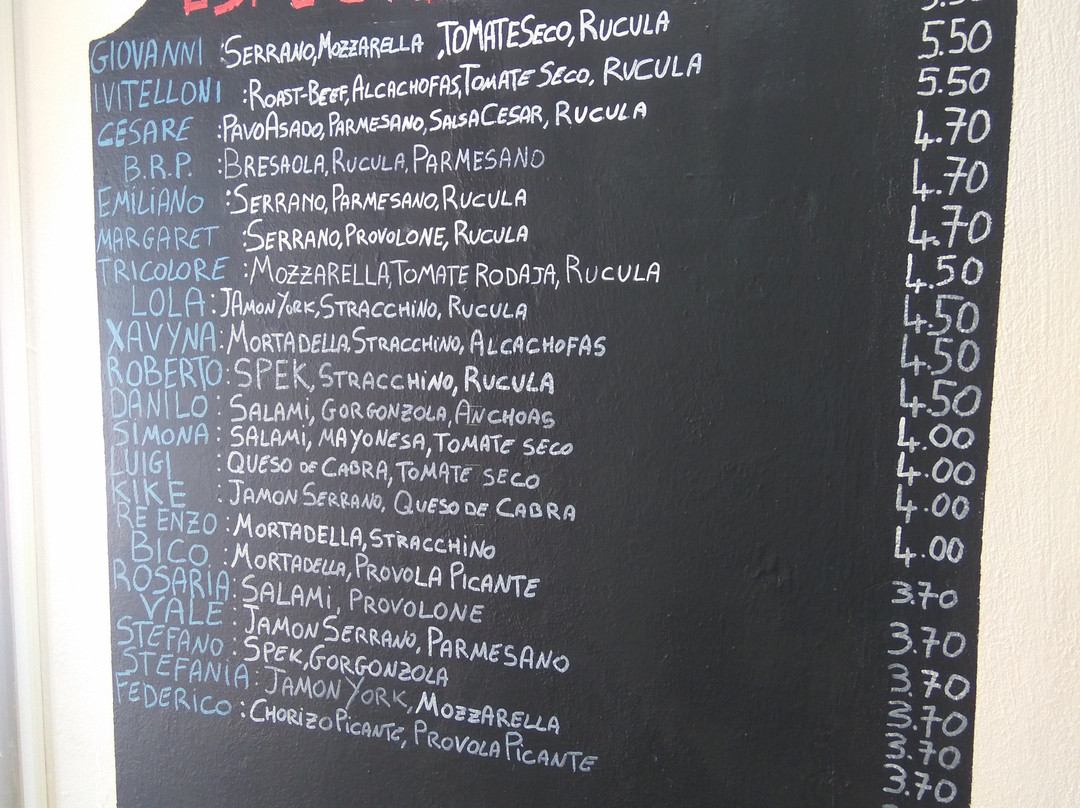 GIOVANNI : SERRANO, MOZZARELLA, TOMATE SECO, RUCULA 5.50
IVITELLONI : ROAST-BEEF, ALCACHOFAS, TOMATE SECO, RUCULA 5.50
CESARE : PAVO ASADO, PARMESANO, SALSA CESAR, RUCULA 5.50
B.R.P. : BRESAOLA, RUCULA, PARMESANO 4.70
EMILIANO : SERRANO, PARMESANO, RUCULA 4.70
MARGARET : SERRANO, PROVOLONE, RUCULA 4.70
TRICOLORE : MOZZARELLA, TOMATE RODAJA, RUCULA 4.50
LOLA : JAMON YORK, STRACCHINO, RUCULA 4.50
XAVYNA : MORTADELLA, STRACCHINO, ALCACHOFAS 4.50
ROBERTO : SPEK, STRACCHINO, RUCULA 4.50
DANILO : SALAMI, GORGONZOLA, ANCHOAS 4.00
SIMONA : SALAMI, MAYONESA, TOMATE SECO 4.00
LUIGI : QUESO DE CABRA, TOMATE SECO 4.00
KIKE : JAMON SERRANO, QUESO DE CABRA 4.00
RE ENZO : MORTADELLA, STRACCHINO 3.70
BICO : MORTADELLA, PROVOLA PICANTE 3.70
ROSARIA : SALAMI, PROVOLONE 3.70
VALE : JAMON SERRANO, PARMESANO 3.70
STEFANO : SPEK, GORGONZOLA 3.70
STEFANIA : JAMON YORK, MOZZARELLA 3.70
FEDERICO : CHORIZO PICANTE, PROVOLA PICANTE